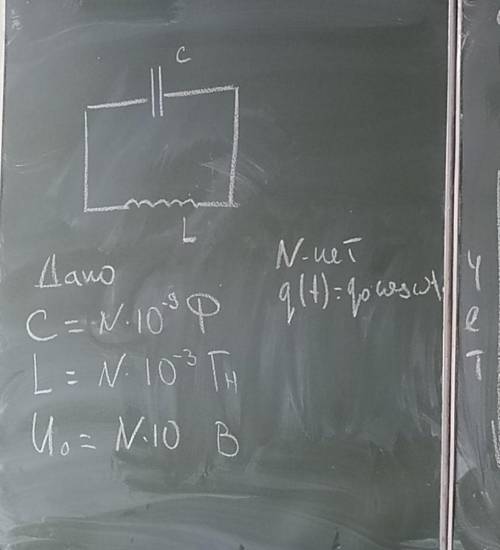 C
L
Дано
C = N·10⁻⁹ Ф
L = N·10⁻³ Гн
U₀ = N·10 В
N-чет
q(t) = q₀ cos ωt
ч
е
т